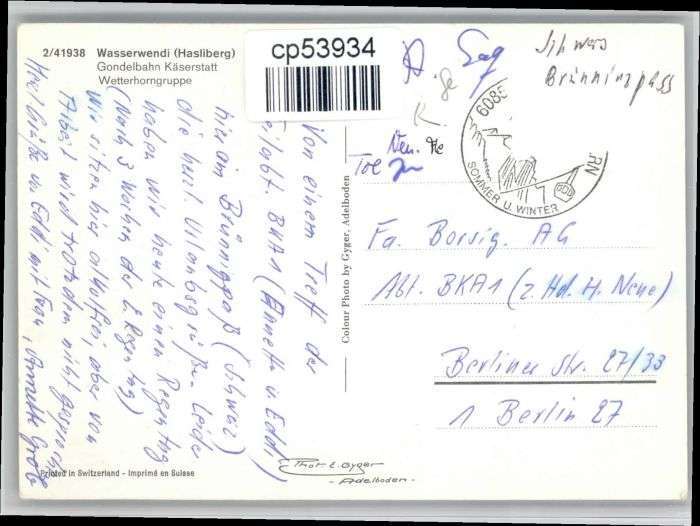 2/41938 Wasserwendi (Hasliberg)
Gondelbahn Käserstatt
Wetterhorngruppe
cp53934
Schweiz
Brünningpass
6085
SOMMER U. WINTER
Von einem Treff der
BKA1 (Annette u. Eddi)
hier am Brünningpaß (Schweiz)
die herzl. Urlaubsgrüße. Leider
haben wir heute einen Regentag
(Nach 3 Wochen der 2. Regentag)
Wir sitzen hier alkoffrei, aber von
Arbeit wird trotzdem nicht gesprochen
Herzl. Grüße von Eddi mit Frau, Annette
Colour Photo by Gyger, Adelboden
Fa. Borsig. AG
Abt. BKA1 (z. Hd. H. Neue)
Berliner Str. 27/33
1 Berlin 27
Printed in Switzerland - Imprimé en Suisse
Phot E. Gyger
- Adelboden -